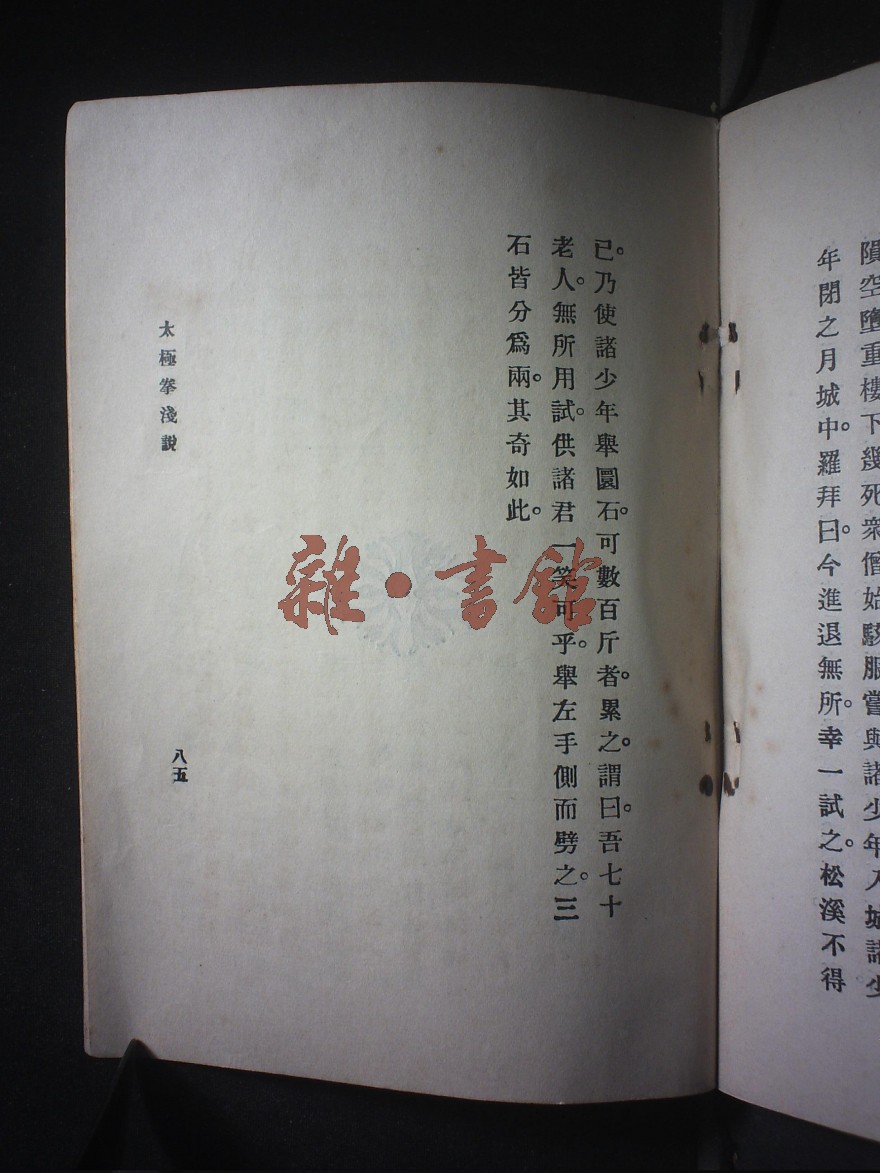 隕空墮重樓下幾死衆僧始駭服嘗與諸少年入城諸少
年閉之月城中。羅拜曰。今進退無所。幸一試之。松溪不得
已。乃使諸少年舉圜石。可數百斤者。累之。謂曰。吾七十
老人。無所用。試供諸君一笑可乎。舉左手側而劈之。三
石皆分爲兩。其奇如此。
太極拳淺說
八五
雜·書館